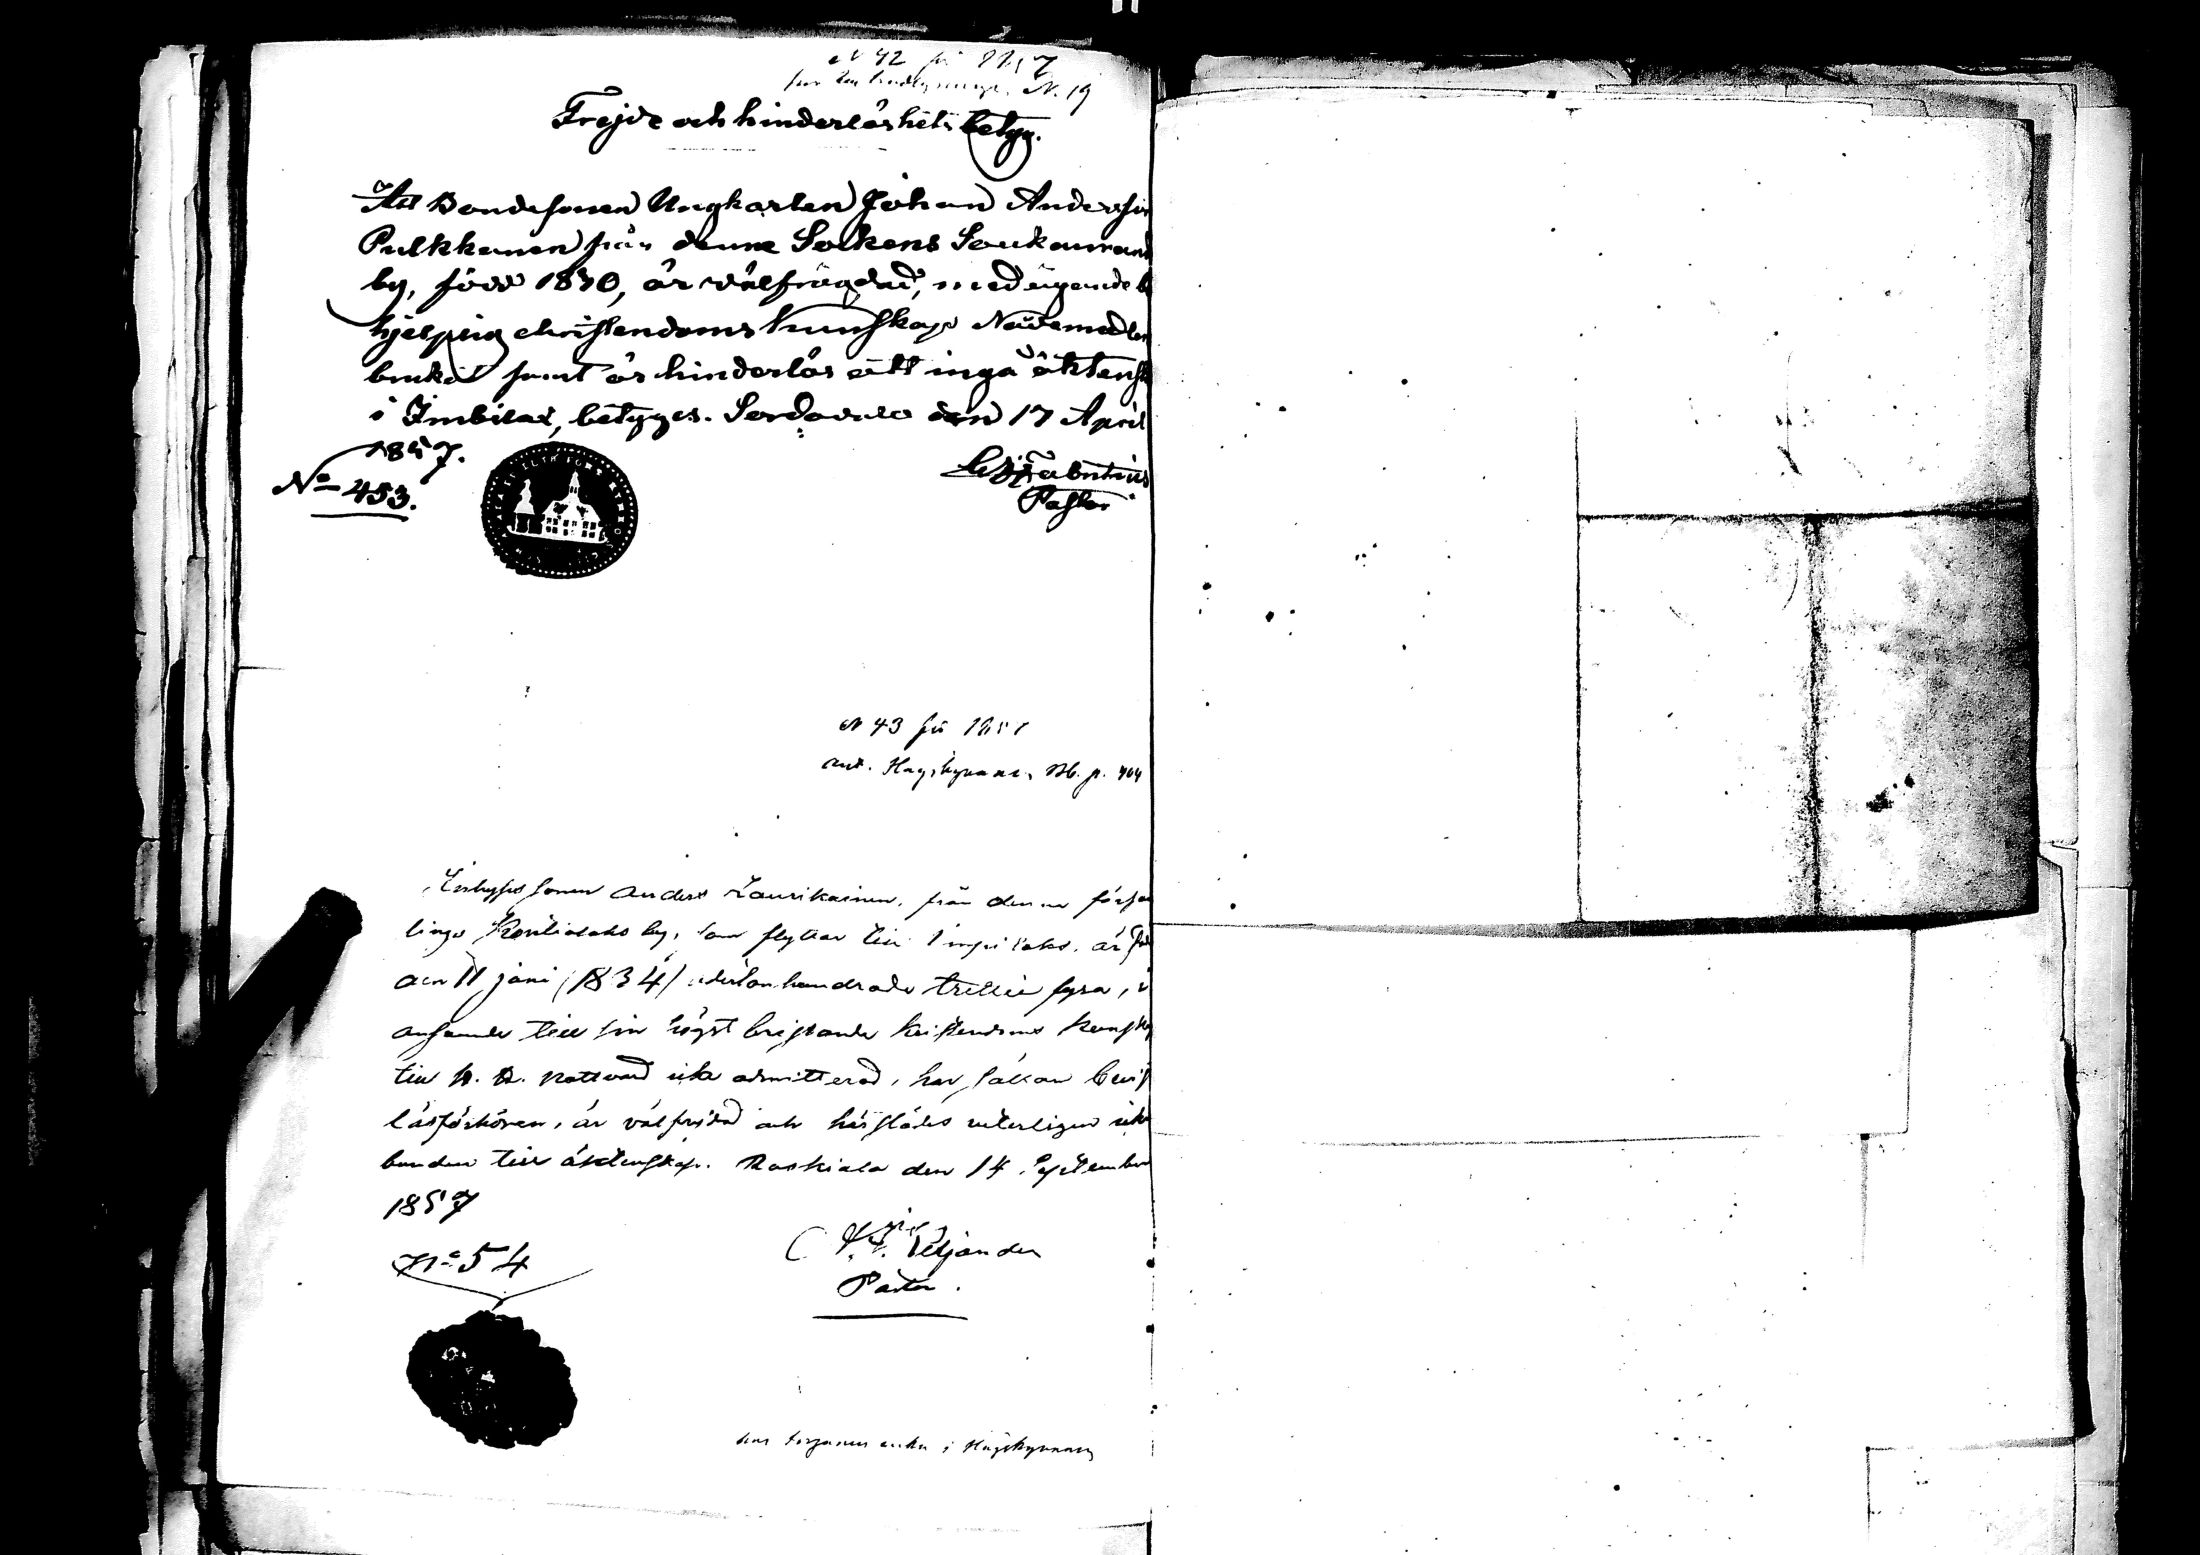 N 42 för 1857
N. 19
Frejde och hinderlöshets betyg.
Att Bondesonen Ungkarlen Johan Andersson
Pulkkanen från denne Sockens Soukanrand
by, född 1830, är välfrägdad, medägande be
hjelplig christendoms kunskap Nådemedlen
brukat samt är hinderlös att ingå äktensk
i Imbilax, betyges. Sordavala den 17 April
1857.
No 453.
Pastor
N 43 för 1857
ant. Hayskynnens Bb. p. 464
Inhyses sonen Anders Laurikainen, från denne försam
lings by, som flyttar till Impilaks, är född
den 11 juni (1834) adertonhundrade trettio fyra, i
anseende till sin högst bristande kristendoms kunskap
till H. H. nattvard icke admitterad, har sällan bevist
läsförhören, är välfrejdad och härstädes veterligen icke
bunden till äktenskap. Ruskiala den 14 September
1857
No 54
Neljander
Pastor.
hos enka i Hayskynnens